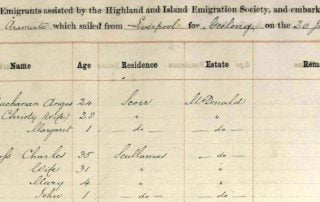 Emigrants assisted by the Highland and Island Emigration Society, and embark
Araminta which sailed from Liverpool for Geelong on the 20 J
Name Age Residence Estate
uchanan Angus 24 Scorr McDonald
Christy (Wife) 28 " "
Margaret 1 - do - - do -
oss Charles 35 Scullamus - do -
Wife 31 " "
Mary 4 " "
John 1 - do - - do -